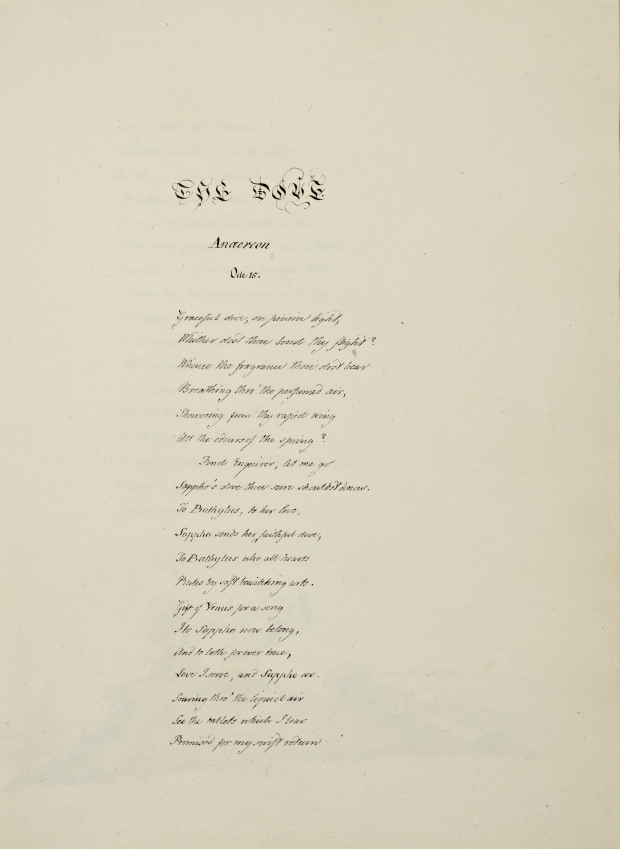 THE DOVE
Anacreon
Ode 15.
Graceful dove, on pinion light,
Whither dost thou bend thy flight?
Whence the fragrance thou dost bear
Breathing thro' the perfumed air,
Showering from thy rapid wing
All the odours of the spring?
Fond Enquirer, let me go
Sappho's dove thou sure should'st know.
To Bathylus, to her love.
Sappho sends her faithful dove,
To Bathylus who all hearts
Rules by soft bewitching arts.
Gift of Venus for a song
I to Sappho now belong,
And to both forever true,
Love I serve, and Sappho
Soaring thro' the liquid air
See the tablets which I bear
Promised for my swift return